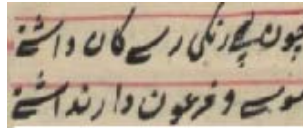 چون ببیرنگی رسی کان داشتی
موسی و فرعون دارند اشتی